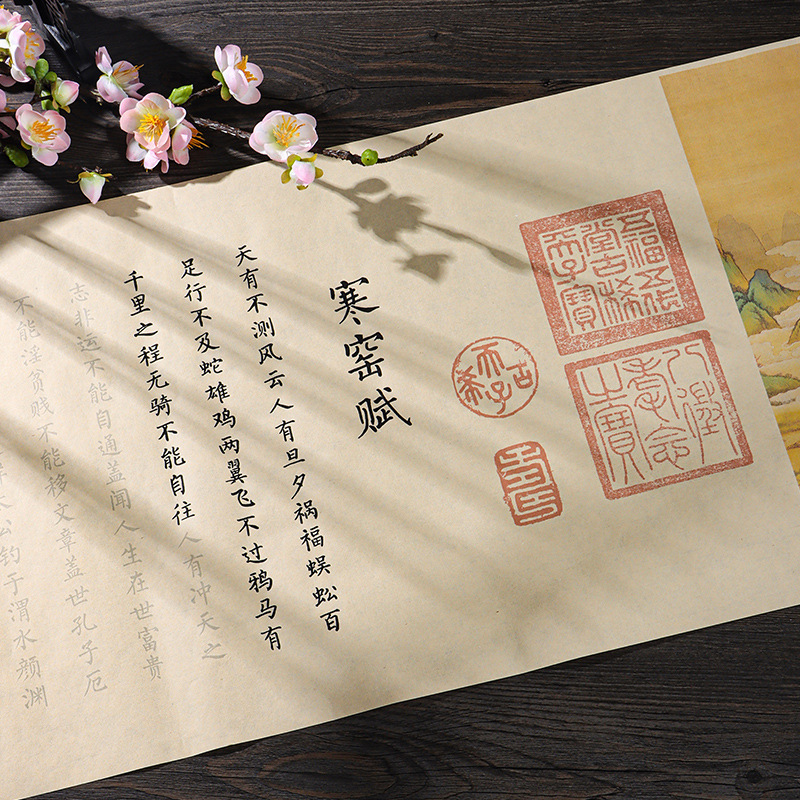 五福五代
堂古稀
天子寶
八徵
耄念
之寶
古稀天子
壽
寒窑赋
天有不测风云人有旦夕祸福蜈蚣百
足行不及蛇雄鸡两翼飞不过鸦马有
千里之程无骑不能自往人有冲天之
志非运不能自通盖闻人生在世富贵
不能淫贫贱不能移文章盖世孔子厄
太公钓于渭水颜渊